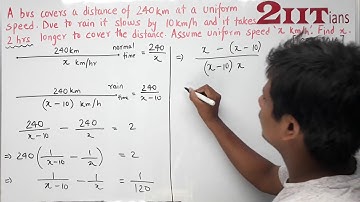 A bus covers a distance of 240 km at a uniform
speed. Due to rain it slows by 10 km/h and it takes
2 hrs longer to cover the distance. Assume uniform speed 'x km/h'. Find x.
2IITians
240 km normal time = 240/x
x km/hr
240 km rain time = 240/x-10
(x-10) km/h
240/x-10 - 240/x = 2
⇒ 240(1/x-10 - 1/x) = 2
⇒ 1/x-10 - 1/x = 1/120
⇒ x - (x-10)/(x-10) x